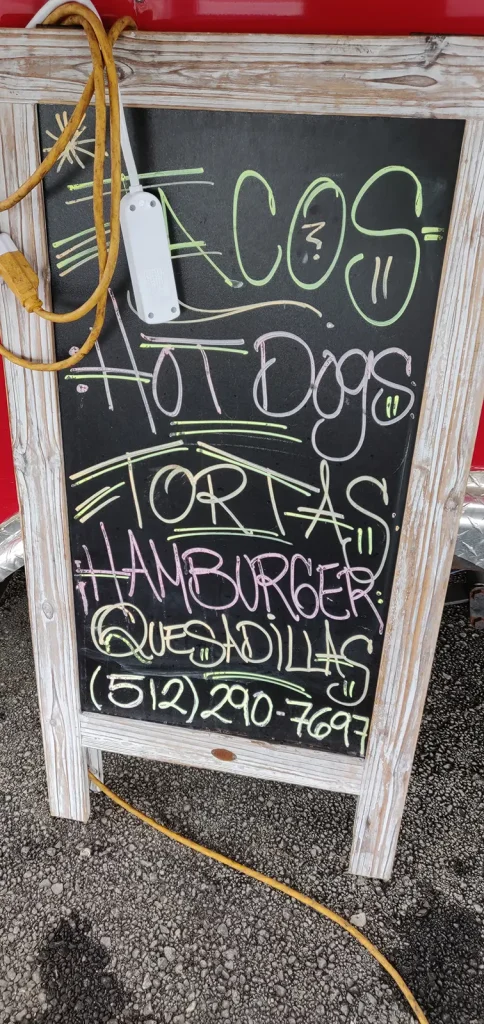 TACOS
HOT Dogs
TORTAS
HAMBURGER
QUESADILLAS
(512) 290-7697